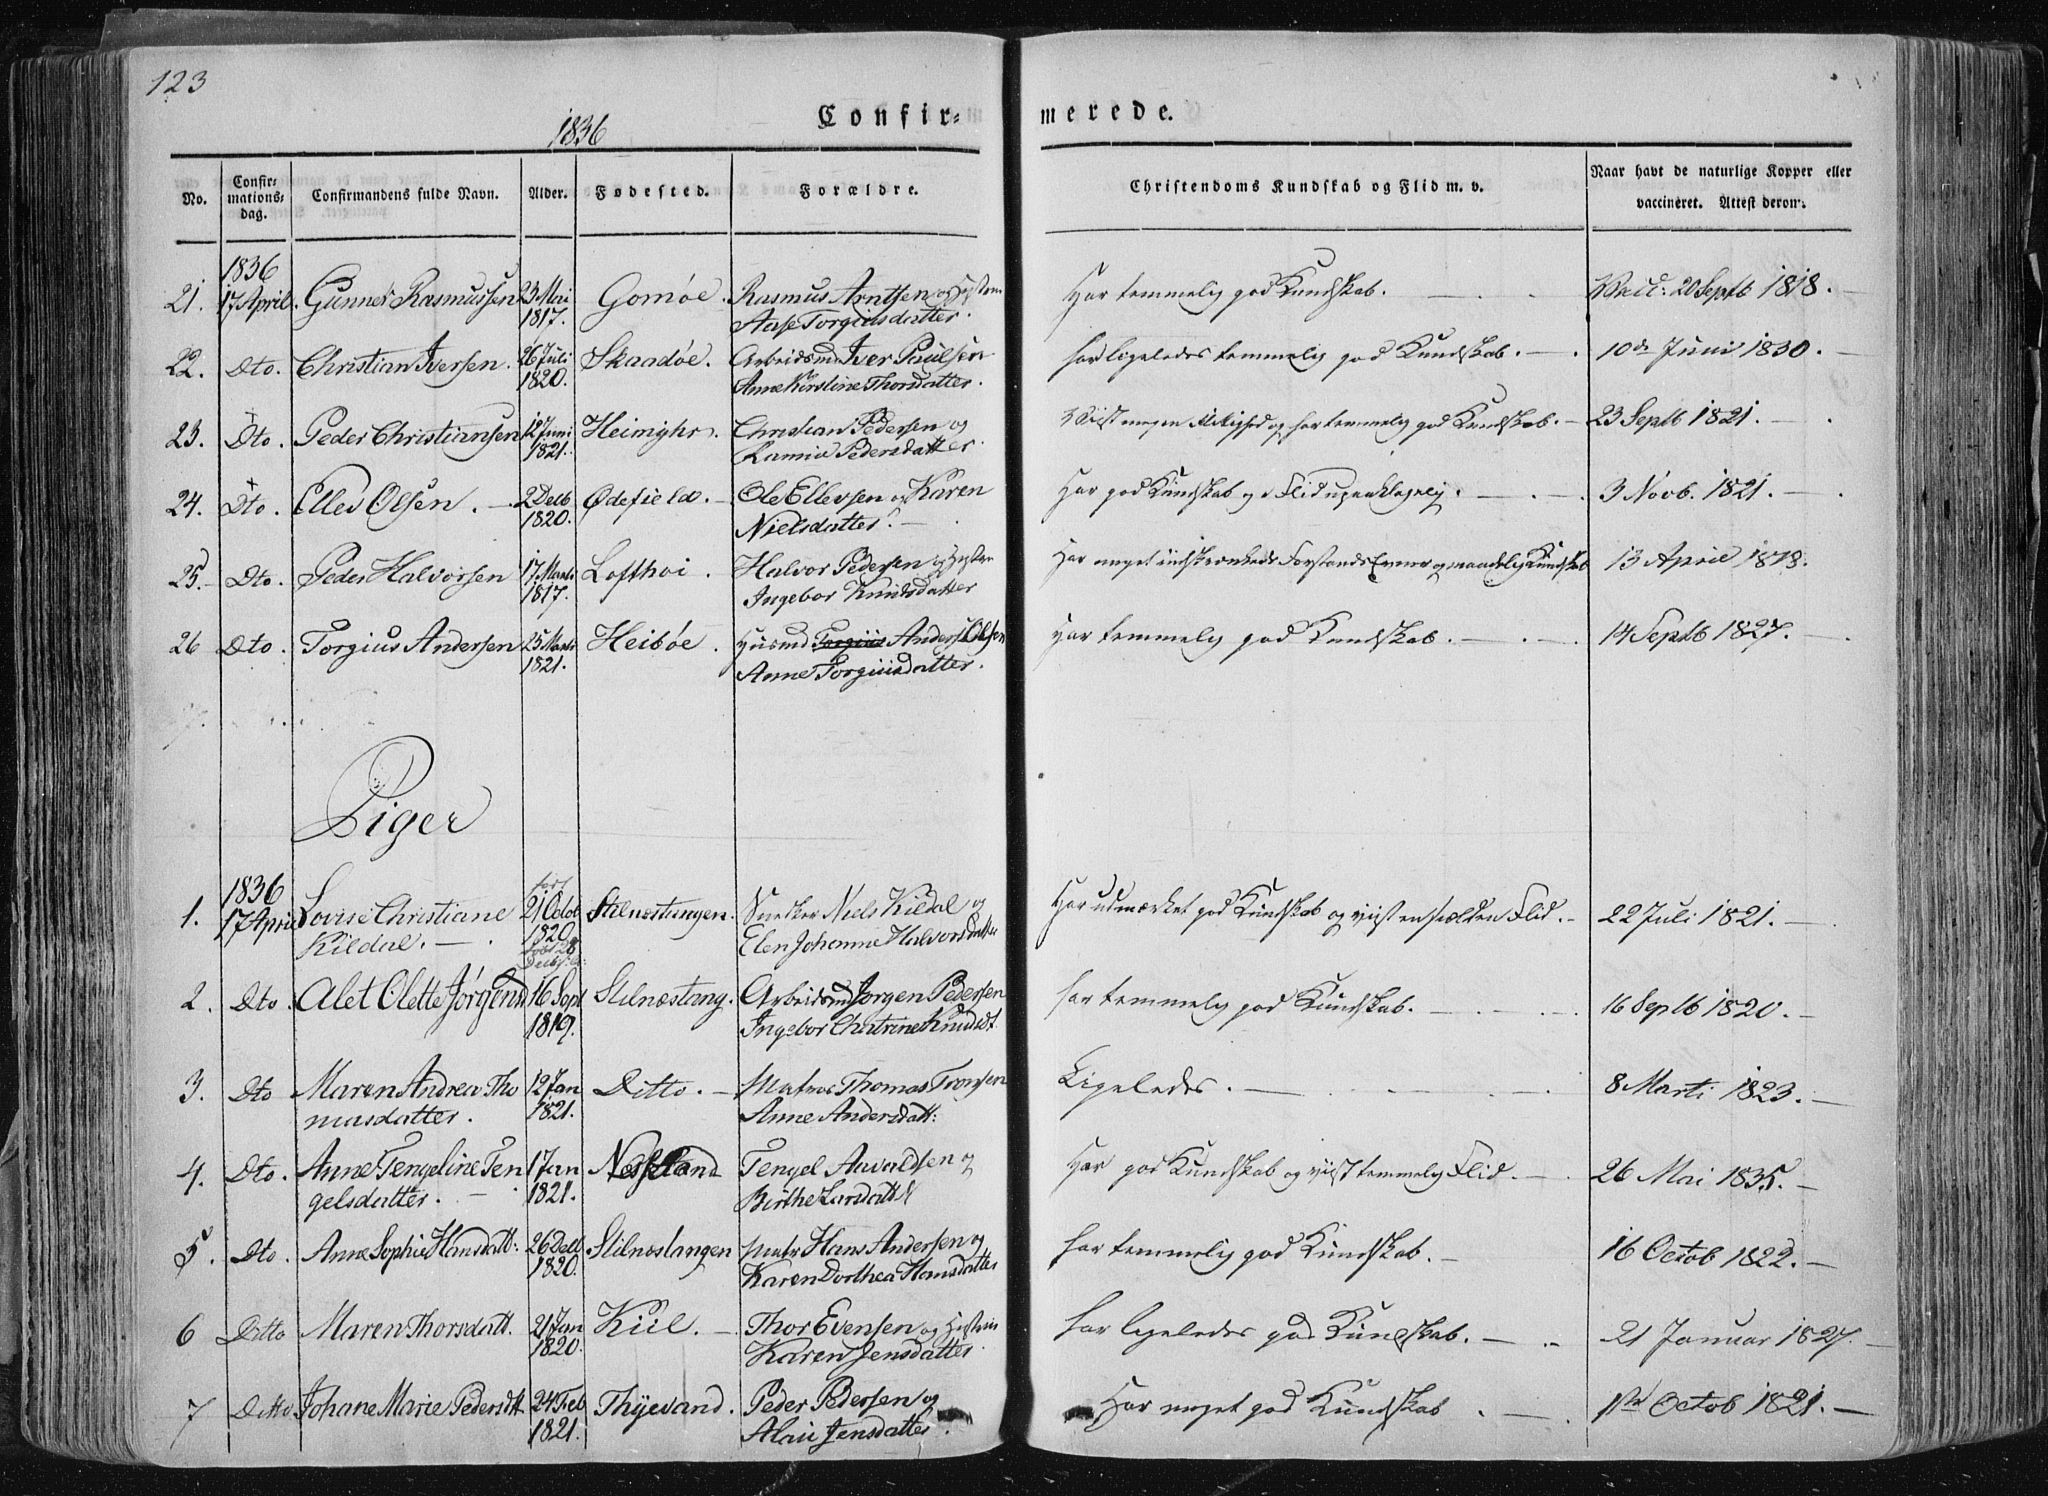 123
1836
Confir-merede.
No. Confir-mations-dag. Confirmandens fulde Navn. Alder. Fødested. Forældre. Christendoms Kundskab og Flid m. v. Naar havt de naturlige Kopper eller vaccineret. Attest derom.
1836
21. 17 April. Gunner Rasmussen 23 Mai Gomøe. Rasmus Arntsen og Hustru Har temmelig god Kundskab. Vacc: 20 Septb 1818.
1817. Aase Torgiusdatter.
22. Dto. Christian Iversen. 26 Juli Skaadøe. Arbeidsmd Iver Paulsen har ligeledes temmelig god Kundskab. 10de Juni 1830.
1820. Anne Kirstine Thorsdatter.
23. Dto. Peder Christiansen 12 Juni Heimyhr. Christian Pedersen og Viist megen Flittighed og har temmelig god Kundskab. 23 Septb 1821.
1821. Pedersdatter
24. Dto. Ellev Olsen. 2 Decb Ødefield. Ole Ellevsen og Karen Har god Kundskab og Flid upaaklagelig. 3 Novb. 1821.
1820. Nielsdatter.
25. Dto. Peder Halvorsen 17 Marts Lofthoi. Halvor Pedersen og Hustru Har meget indskrænkede Forstands Evner og maadelig Kundskab 13 April 1818.
1817. Ingebor Knudsdatter
26 Dto. Torgius Andersen 25 Marts Heibøe. Husmd Torgius Anders Olsen har temmelig god Kundskab. 14 Septb 1827.
1821. Anne Torgiusdatter.
Piger
1836
1. 17 April Lovise Christiane 21 Octob Stilnestangen. Snedker Niels Kildal og Har udmærket god Kundskab og viist en sielden Flid. 22 Juli 1821.
Kildal. 1820. Elen Johanne Halvorsdatter
2. Dto. Alet Olette Jørgensd 16 Sept Stilnestang. Arbeidsmd Jorgen Pedersen har temmelig god Kundskab. 16 Septb 1820.
1819. Ingebor Chatrine Knudsdt.
3. Dto Maren Andrea Tho 12 Jan Ditto. Matros Thomas Tronsen Ligeledes. 8 Marti 1823.
masdatter. 1821. Anne Andersdatt:
4. Dto. Anne Tengeline Ten 1 Jan Næsland Tengel Aavaldsen og Har god Kundskab og viist temmelig Flid. 26 Mai 1835.
gelsdatter. 1821. Birthe Larsdatt
5. Dto. Anne Sophie Hansdatt: 26 Decb Stilnestangen Matr Hans Andersen og har temmelig god Kundskab. 16 Octob 1822.
1820. Karen Dorthea Hansdatter
6 Ditto Maren Thorsdatt. 21 Jan Kiil. Thor Evensen og Hustru har ligeledes god Kundskab. 21 Januar 1827.
1820. Karen Jensdatter.
7 Ditto Johane Marie Pedersdt 24 Feb Thyevand. Peder Pedersen og Har meget god Kundskab 1ste Octob 1821.
1821. Jensdatter.